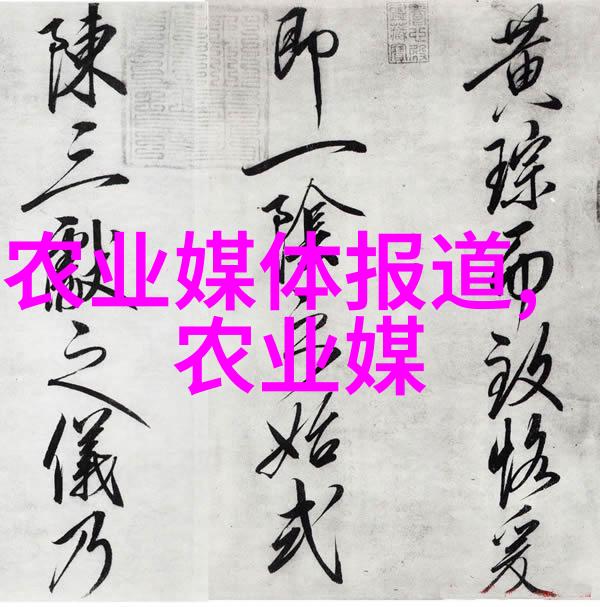 黄琮而致恪爰
即一陰之始式
陳三獻之儀乃
农业媒体报道,
农业媒